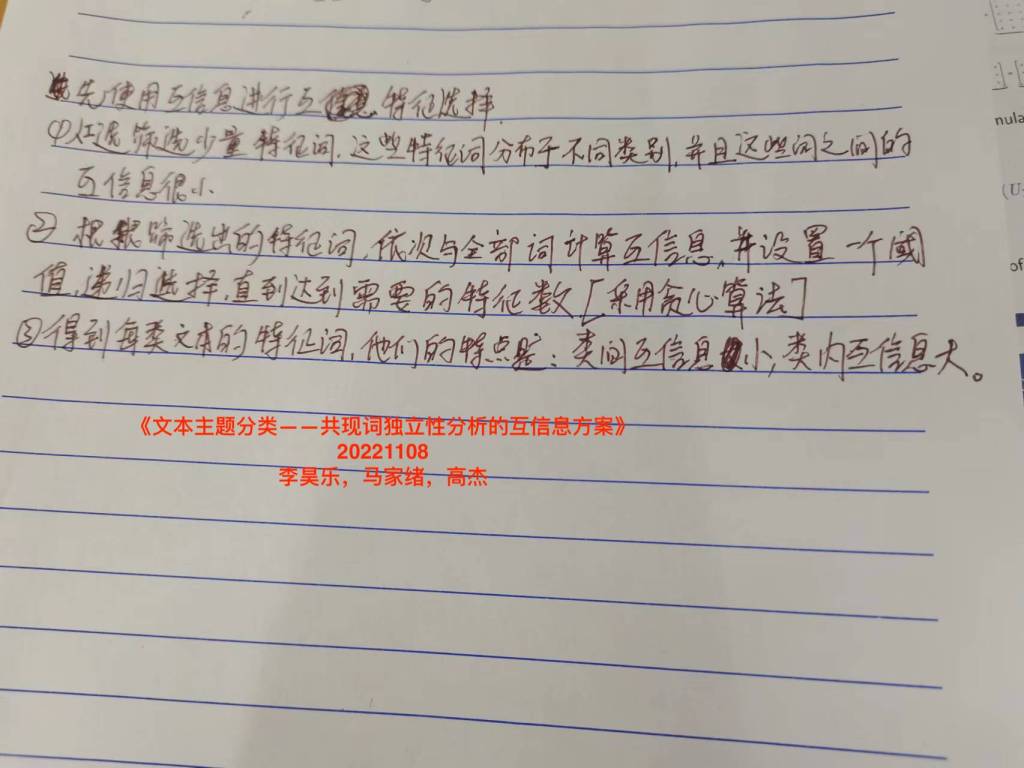 先使用互信息进行互信息特征选择.
①任选筛选少量特征词.这些特征词分布于不同类别,并且这些词之间的
互信息很小
② 根据筛选出的特征词,依次与全部词计算互信息,并设置一个阈
值,递归选择,直到达到需要的特征数[采用贪心算法]
③得到每类文本的特征词,他们的特点是:类间互信息小,类内互信息大。
《文本主题分类——共现词独立性分析的互信息方案》
20221108
李昊乐，马家绪，高杰
nula
(U-
of